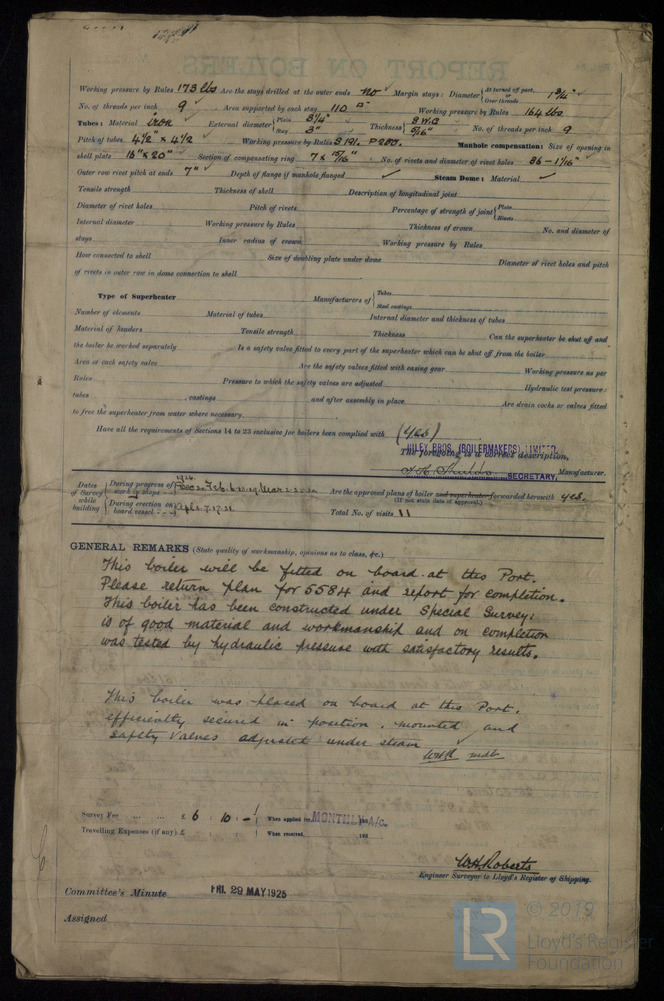 REPORT ON BOILERS
Working pressure by Rules 173 lbs Are the stays drilled at the outer ends no Margin stays: Diameter { At turned off part, or Over threads 1 3/4"
No. of threads per inch 9 Area supported by each stay 110 Working pressure by Rules 164 lbs
Tubes: Material iron External diameter { Plain 3 1/4" Stay 3" Thickness { 8 W.G 5/16" No. of threads per inch 9
Pitch of tubes 4 1/2" x 4 1/2" Working pressure by Rules Manhole compensation: Size of opening in
shell plate 16" x 20" Section of compensating ring No. of rivets and diameter of rivet holes 36 - 1 1/16"
Outer row rivet pitch at ends 7" Depth of flange if manhole flanged Steam Dome: Material
Tensile strength Thickness of shell Description of longitudinal joint
Diameter of rivet holes Pitch of rivets Percentage of strength of joint { Plate Rivets
Internal diameter Working pressure by Rules Thickness of crown No. and diameter of
stays Inner radius of crown Working pressure by Rules
How connected to shell Size of doubling plate under dome Diameter of rivet holes and pitch
of rivets in outer row in dome connection to shell
Type of Superheater Manufacturers of { Tubes Steel castings
Number of elements Material of tubes Internal diameter and thickness of tubes
Material of headers Tensile strength Thickness Can the superheater be shut off and
the boiler be worked separately Is a safety valve fitted to every part of the superheater which can be shut off from the boiler
Area of each safety valve Are the safety valves fitted with easing gear Working pressure as per
Rules Pressure to which the safety valves are adjusted Hydraulic test pressure:
tubes , castings and after assembly in place Are drain cocks or valves fitted
to free the superheater from water where necessary
Have all the requirements of Sections 14 to 23 inclusive for boilers been complied with (yes)
RILEY BROS. (BOILERMAKERS) LIMITED.
The foregoing is a correct description,
SECRETARY. Manufacturer.
Dates of Survey while building { During progress of work in shops - - Are the approved plans of boiler and superheater forwarded herewith yes.
(If not state date of approval.)
During erection on board vessel - - - Total No. of visits 11
GENERAL REMARKS (State quality of workmanship, opinions as to class, &c.)
This boiler will be fitted on board at this Port.
Please return plan for 5584 and report for completion.
This boiler has been constructed under Special Survey;
is of good material and workmanship and on completion
was tested by hydraulic pressure with satisfactory results.
This boiler was placed on board at this Port.
efficiently secured in position, mounted and
safety valves adjusted under steam
Survey Fee ... ... £ 6 : 10 : - When applied for, MONTHLY A/c. 192
Travelling Expenses (if any) £ When received, 192
WHRoberts
Engineer Surveyor to Lloyd's Register of Shipping.
Committee's Minute FRI. 29 MAY 1925
Assigned
LR © 2019
Lloyd's Register
Foundation